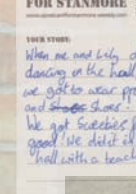 FOR STANMORE
YOUR STORY:
When me and Lily d
dancing in the hall
we got to wear pr
and Shoes.
We got Scoobies f
good. We did it i
hall with a teach